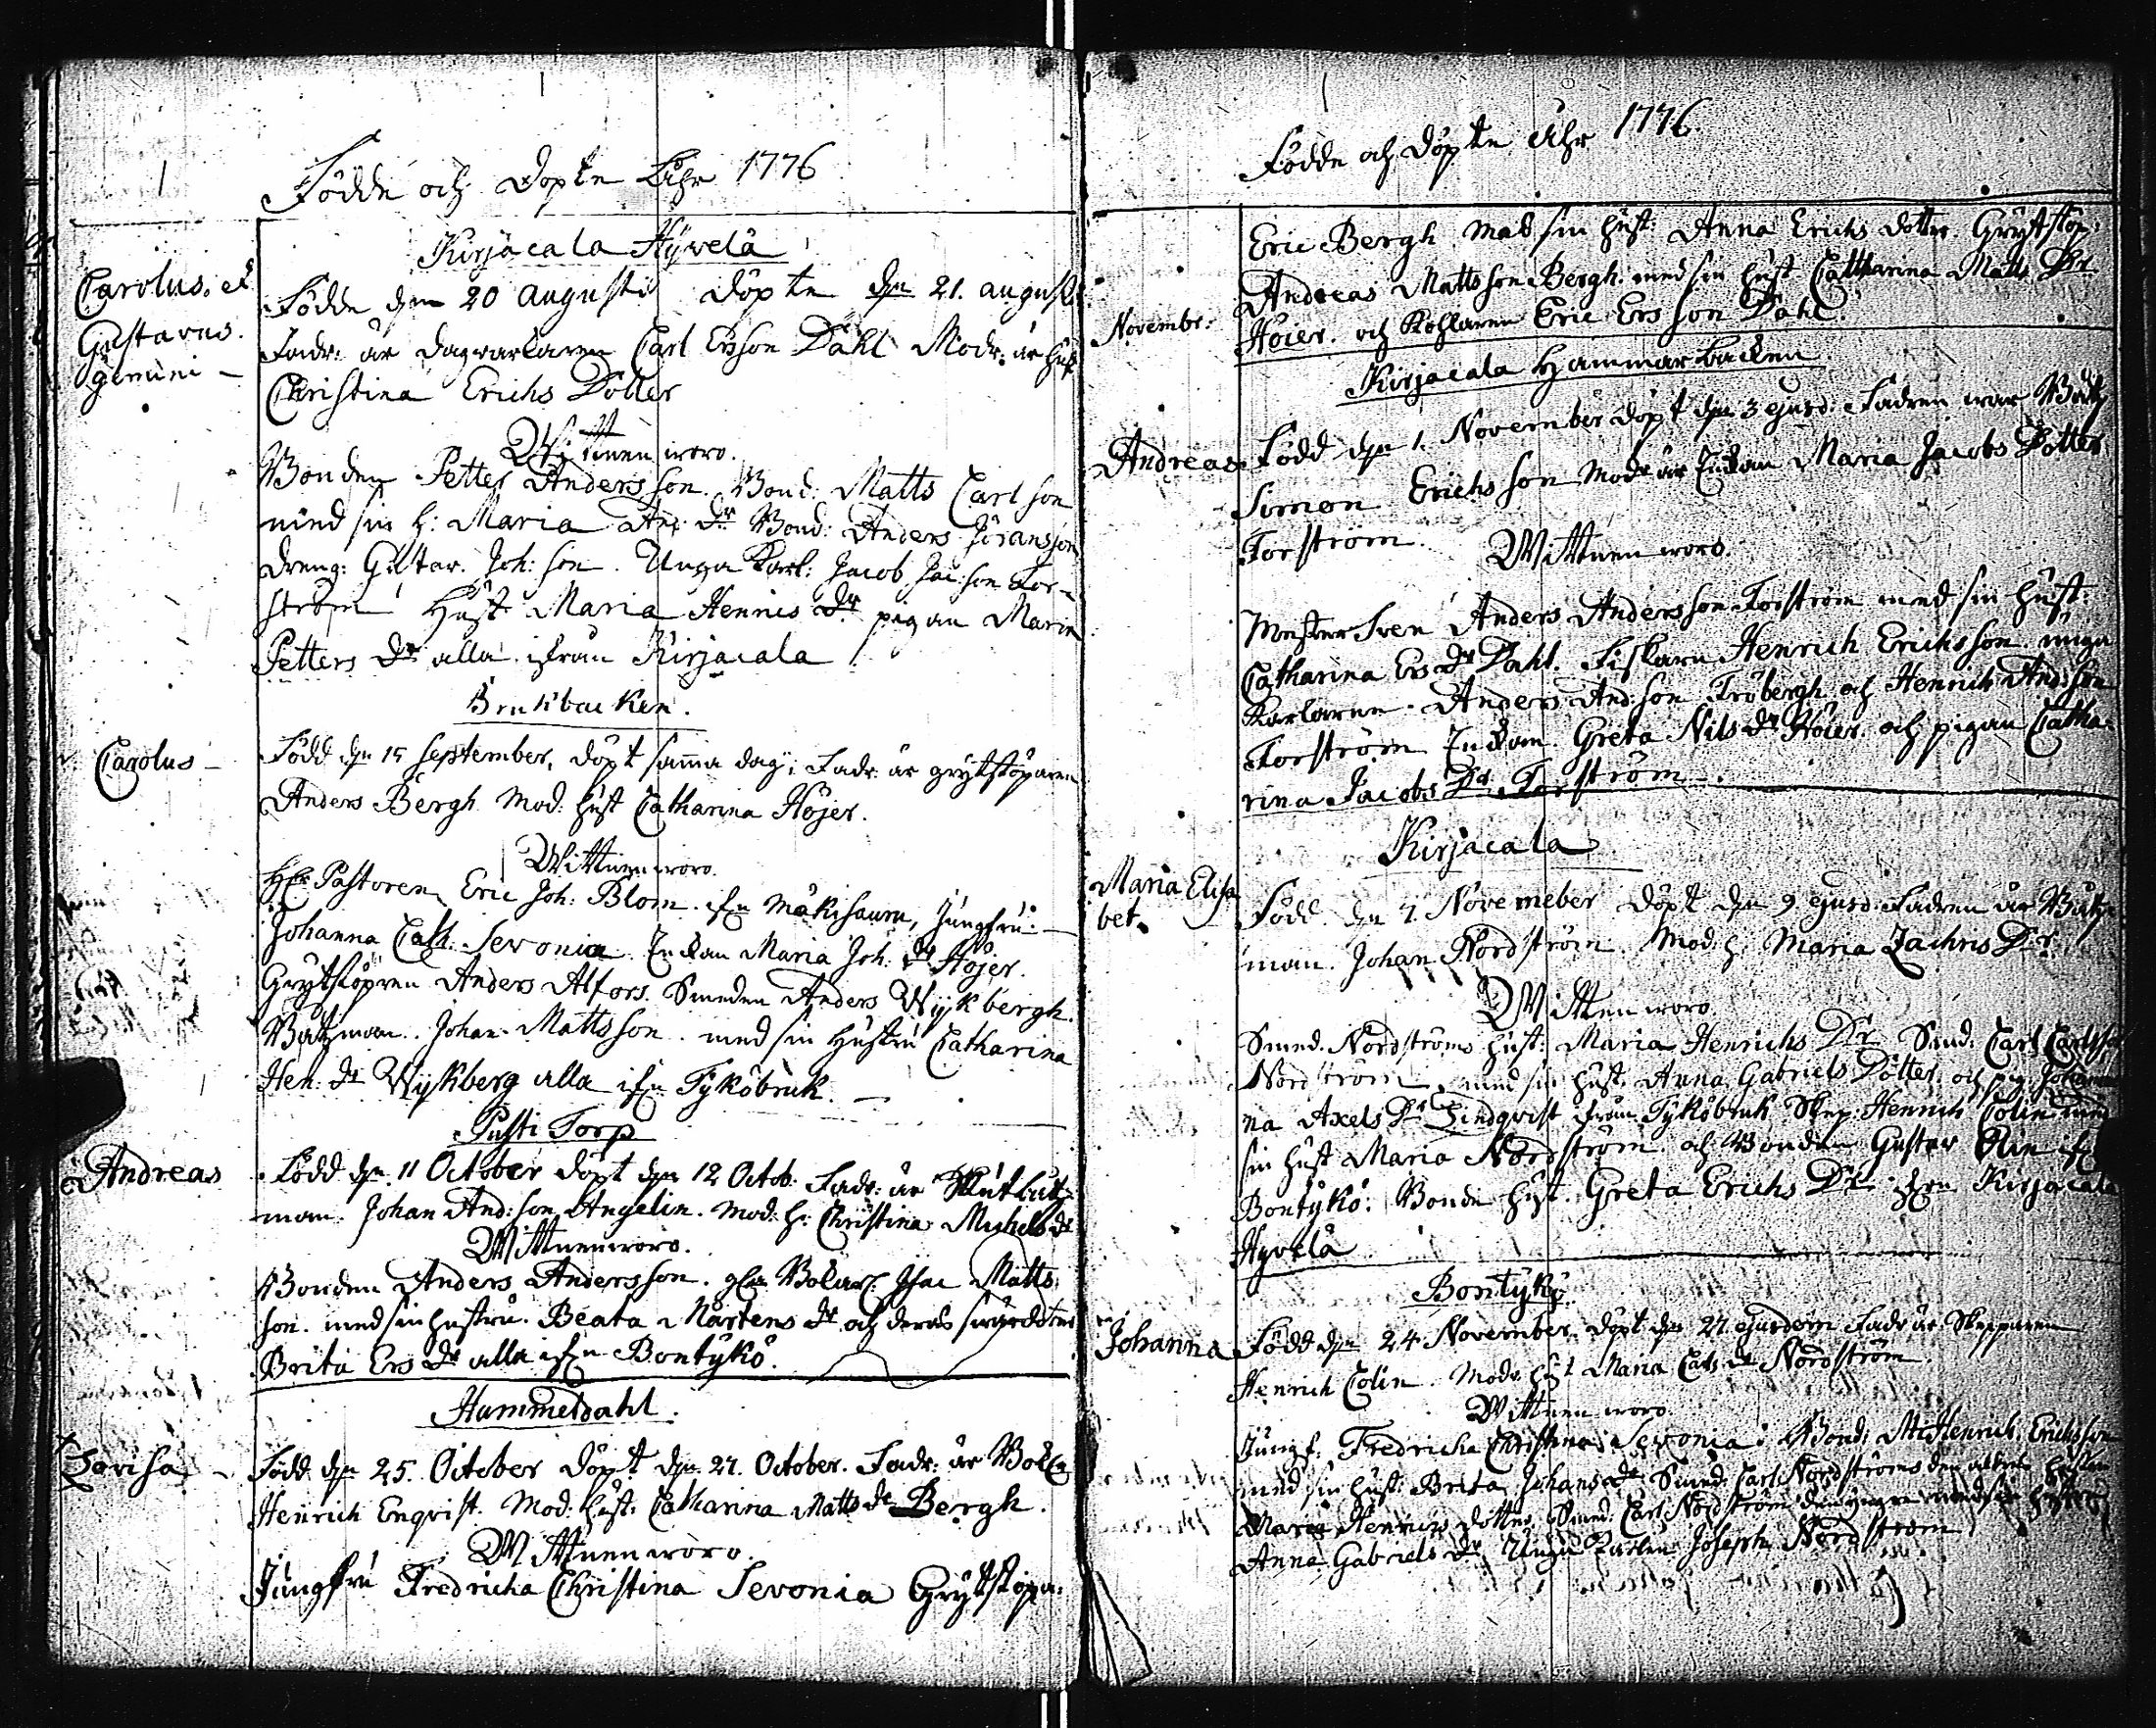 Födde och Döpte Åhr 1776
Kirjacala Hyvelä
Carolus. et
Gustavus.
gemini –
Födde den 20 Augusti Döpte den 21. Augusti
Fadr: är dagzarkaren Carl Ersson Dahl Modr: är hust
Christina Erichs Dotter
Wittnen woro.
Bonden Petter Andersson. Bond: Matts Carlson
med sin h: Maria And: dr Bond: Anders Jöransson
dreng: Gustav. Joh: son. Unga Karl: Jacob Jac: son Tor-
ström Hust Maria Hennis dr pigan Maria
Petters dr alla ifrån Kirjacala
Brukbacken.
Carolus –
Född den 15 September, döpt samma dag, Fadr: är grytstöparen
Anders Bergh Mod: hust Catharina Höjer.
Wittnen woro.
Hr Pastoren Eric Joh: Blom. ifrn Mäkisaurn, Jungfru. –
Johanna Cath. Sevonia Enckan Maria Joh: dr Höjer.
Grytstöpren Anders Alfors. Smeden Anders Wykbergh.
Båtzman. Johan Mattsson. med sin hustru Catharina
Hen: dr Wykberg alla ifrn Tyköbruk. –
Pusti Torp
Andreas
Född den 11 October döpt den 12 Octob: Fadr: är
man. Johan And: son Angelin. Mod: h: Christina Michels dr
Wittnen woro.
Bonden Anders Andersson. Isac Matts
son. med sin hustru. Beata Mårtens dr och deras
Brita Ers dr alla ifrn Bontykö.
Hummeldahl.
Lovisa –
Född den 25. October döpt den 27. October. Fadr: är
Henrich Enqvist. Mod: hust: Catharina Matts dr Bergh.
Wittnen woro.
Jungfru Fredricha Christina Sevonia Grytstöpa:
Födde och Döpte Åhr 1776
Eric Bergh med sin hust: Anna Erichs dotter. Grytstöp:
Andreas Mattsson Bergh med sin hust Cattharina Matts Dr
Höier. och Kohlaren Eric Ersson Dahl.
Novembr:
Kirjacala Hammarbacken
Andreas
Född den 1. November döpt den 3 ejusd: Fadren war
Simon Erichsson Modr är Enckan Maria Jacobs Dotter
Torström.
Wittnen woro.
Mester Sven Anders Andersson Torström med sin hust:
Catharina Ers dr Dahl. Fiskaren Henrich Erichsson unga
Karlarne. Anders And: son Tröbergh och Henrich And: son
Torström Enckan. Greta Nils dr Höier. och pigan Catha-
rina Jacobs Dr Torström –.
Kirjacala
Maria Elisa
bet.
Född den 7. Novemeber döpt den 9 ejusd: Fadren är Båtz-
man. Johan Nordström. Mod: h: Maria Zachris Dr.
Wittnen woro.
Smed. Nordströms hust: Maria Henrichs Dr Smd: Carl Carlsson
Nordström med sin hust. Anna Gabriels Dotter. och pig: Johan
na Axels Dr Lindqvist från Tyköbruk Skep: Henrich Colin med
sin hust Maria Nordström. och Bonden Gustav Olin ifrn
Bontykö. Bonde hust. Greta Erichs Dr ifrn Kirjacala
Hyvelä
Bontykö.
Johanna
Född den 24 November. döpt den 27 ejusdem Fadr är Skepparen
Henrich Colin. Modr hust Maria Carls dr Nordström.
Wittnen woro.
Jungf. Fredricha Christina Sevonia: Bond: Henrich. Erichsson
med sin hust: Brita Johans dr Smed: Carl Nordströms den äldres hustru
Maria Henrics dotter. Smed. Carl Nordström den yngre med sin hustru
Anna Gabriels dr Unga Karlen Joseph Nordström